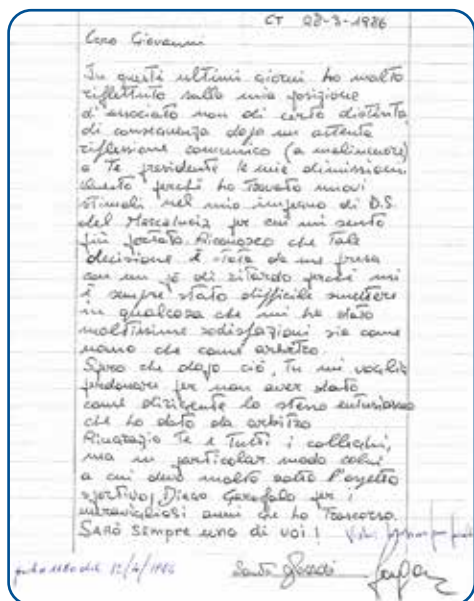 CT 28-3-1986
Caro Giovanni
In questi ultimi giorni ho molto
riflettuto sulla mia posizione
d'associato non di certo distinta
di conseguenza dopo un attenta
riflessione comunico (a malincuore)
a Te presidente le mie dimissioni
questo perché ho Trovato nuovi
stimoli nel mio impegno di D.S.
del Mascalucia per cui mi sento
più portato. Riconosco che Tale
decisione è stata da me presa
con un pò di ritardo perché mi
è sempre stato difficile smettere
in qualcosa che mi ha dato
moltissime sodisfazioni sia come
uomo che come arbitro.
Spero che dopo ciò, Tu mi voglia
perdonare per non aver dato
come dirigente lo stesso entusiasmo
che ho dato da arbitro
Ringrazio Te e Tutti i colleghi,
ma in particolar modo colui
a cui devo molto sotto l'aspetto
sportivo, Diego Garofalo per i
meravigliosi anni che ho Trascorso.
SARÒ SEMPRE UNO DI VOI!
12/4/1986